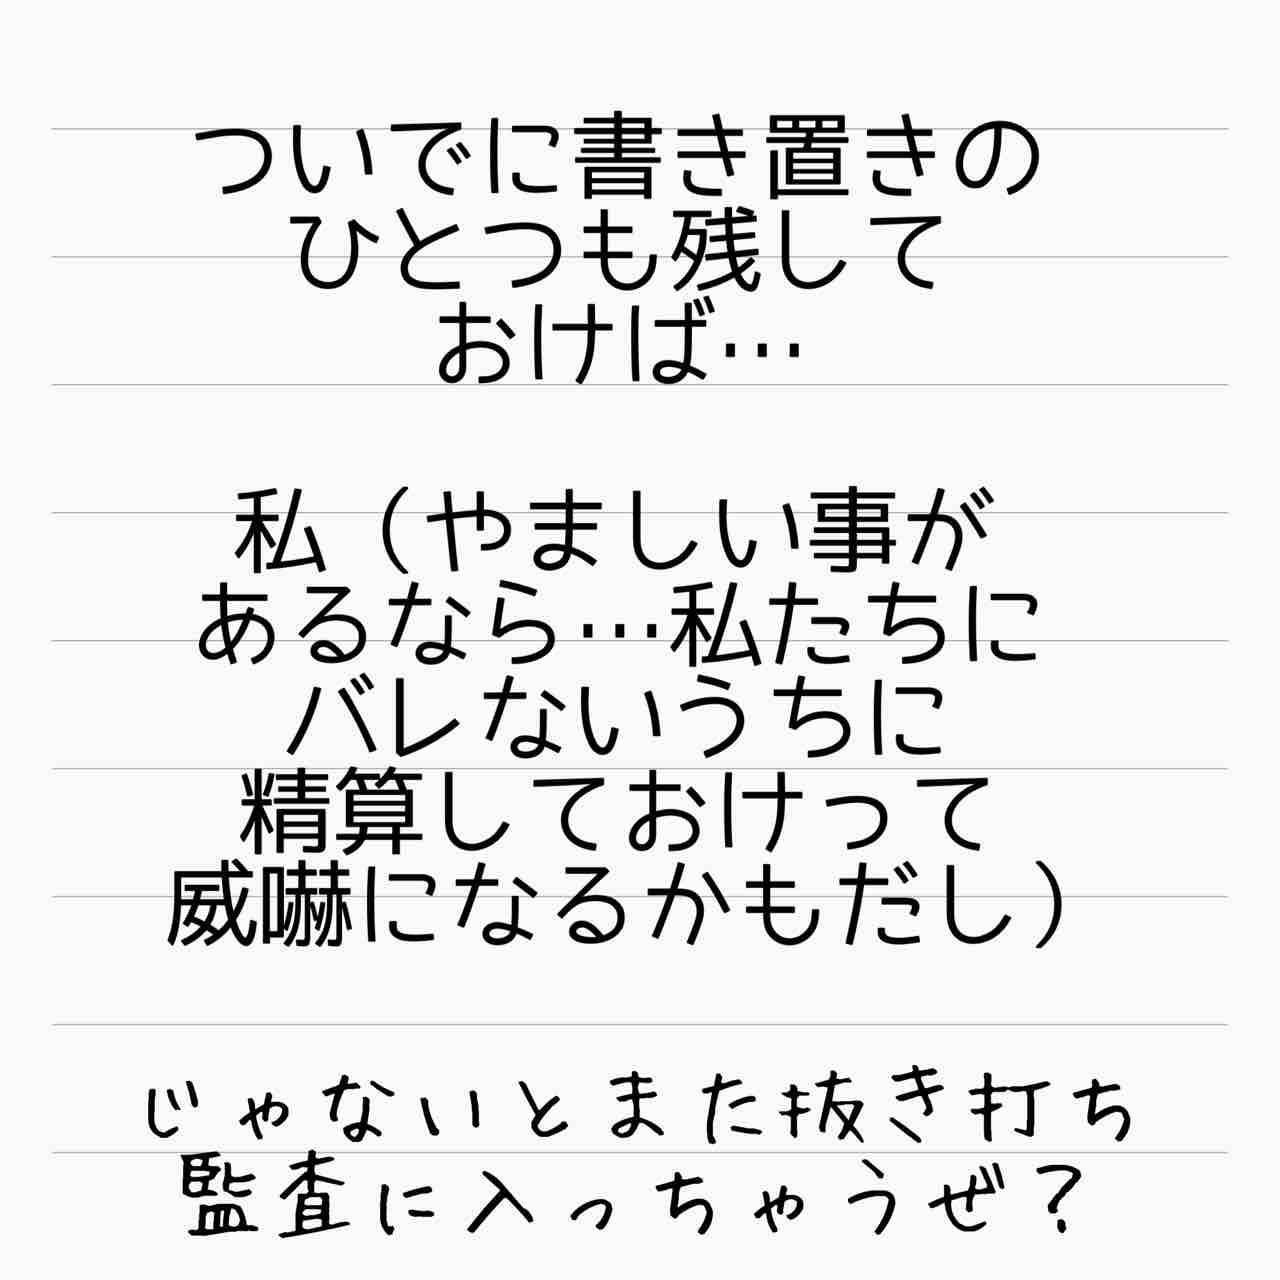 ついでに書き置きの
ひとつも残して
おけば…
私（やましい事が
あるなら…私たちに
バレないうちに
精算しておけって
威嚇になるかもだし）
じゃないとまた抜き打ち
監査に入っちゃうぜ？